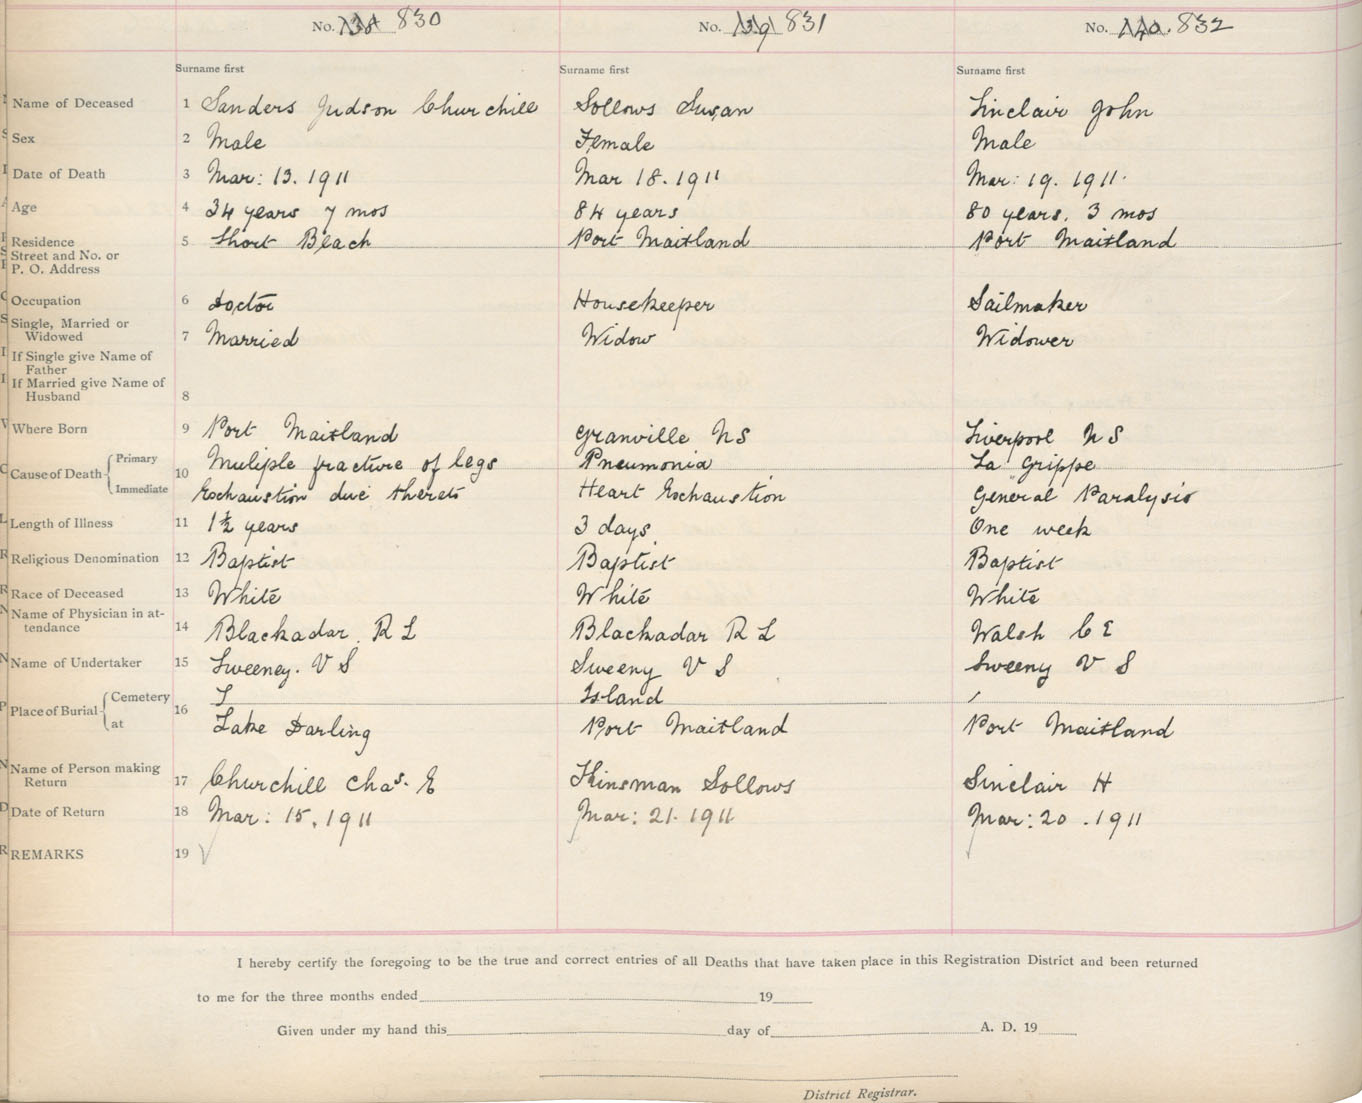 No. 138 830 No. 139 831 No. 140. 832
Surname first Surname first Surname first
Name of Deceased 1 Sanders Judson Churchill Sollows Susan Sinclair John
Sex 2 Male Female Male
Date of Death 3 Mar: 13. 1911 Mar 18. 1911 Mar: 19. 1911.
Age 4 34 years 7 mos 84 years 80 years. 3 mos
Residence 5 Short Beach Port Maitland Port Maitland
Street and No. or
P. O. Address
Occupation 6 doctor Housekeeper Sailmaker
Single, Married or
Widowed 7 Married Widow Widower
If Single give Name of
Father
If Married give Name of
Husband 8
Where Born 9 Port Maitland Granville NS Liverpool NS
Cause of Death Primary 10 Muliple fracture of legs Pneumonia La Grippe
Immediate Exchaustion due thereto Heart Exchaustion General Paralysis
Length of Illness 11 1½ years 3 days One week
Religious Denomination 12 Baptist Baptist Baptist
Race of Deceased 13 White White White
Name of Physician in at-
tendance 14 Blackadar. R L Blackadar R L Walsh C E
Name of Undertaker 15 Sweeney. V S Sweeny V S Sweeny V S
Place of Burial Cemetery 16 Island
at Lake Darling Port Maitland Port Maitland
Name of Person making
Return 17 Churchill Chas. E Kinsman Sollows Sinclair H
Date of Return 18 Mar: 15. 1911 Mar: 21. 1911 Mar: 20. 1911
REMARKS 19
I hereby certify the foregoing to be the true and correct entries of all Deaths that have taken place in this Registration District and been returned
to me for the three months ended 19
Given under my hand this day of A. D. 19
District Registrar.